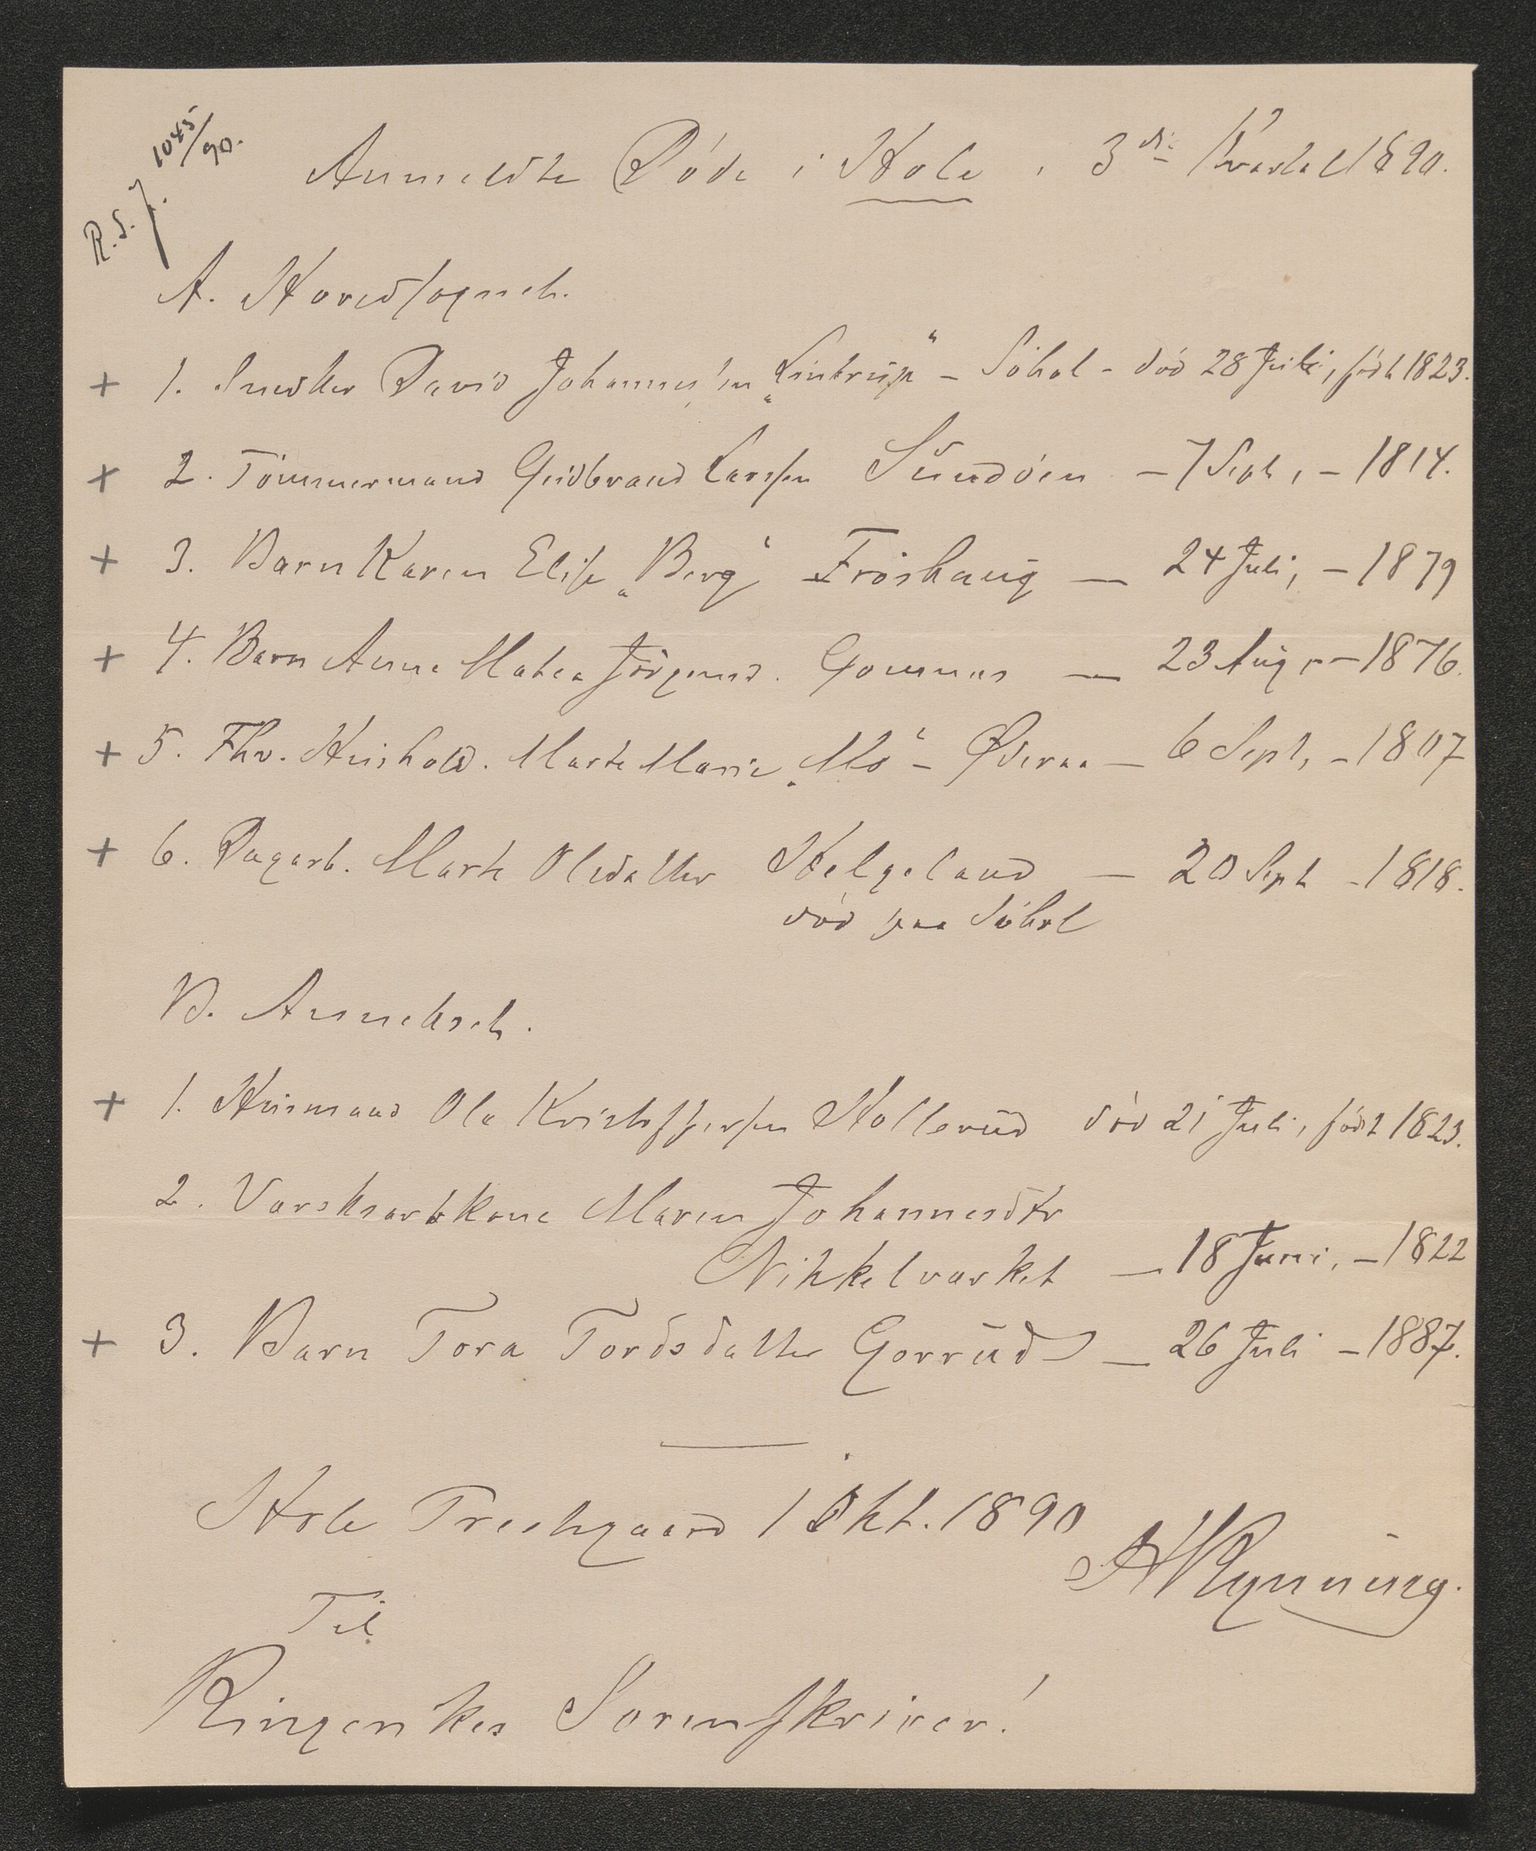 R. S. J. 1045/90.
Anmeldte Døde i Hole i 3die Kvartal 1890.
A. Hovedsognet.
+ 1. Snedker David Johannessen „Lintrup“ – Søhol – død 28 Juli, født 1823.
+ 2. Tömmermand Gudbrand Larssen Sundöen – 7 Sept, – 1814.
+ 3. Barn Karen Elise „Berg“ Fröshaug — 24 Juli, – 1879
+ 4. Barn Anne Mathea Jörgensd. Gomnæs — 23 Aug, – 1876.
+ 5. Fhv. Hushold. Marte Marie „Mo“ – Øderaa — 6 Sept, – 1807
+ 6. Dagarb. Marte Olsdatter Helgeland — 20 Sept – 1818.
död paa Söhol
B. Annekset.
+ 1. Husmand Ole Kristoffersen Hollerud död 21 Juli, födt 1823.
2. Værksarbkone Maren Johannesdtr
Nikkelværket — 18 Juni, – 1822
+ 3. Barn Tora Tordsdatter Gorrud — 26 Juli – 1887.
Hole Prestegaard 1 Okt. 1890
Rynning.
Til
Ringerikes Sorenskriver!